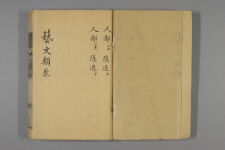 人部 隱逸上
人部 隱逸下
藝文類聚